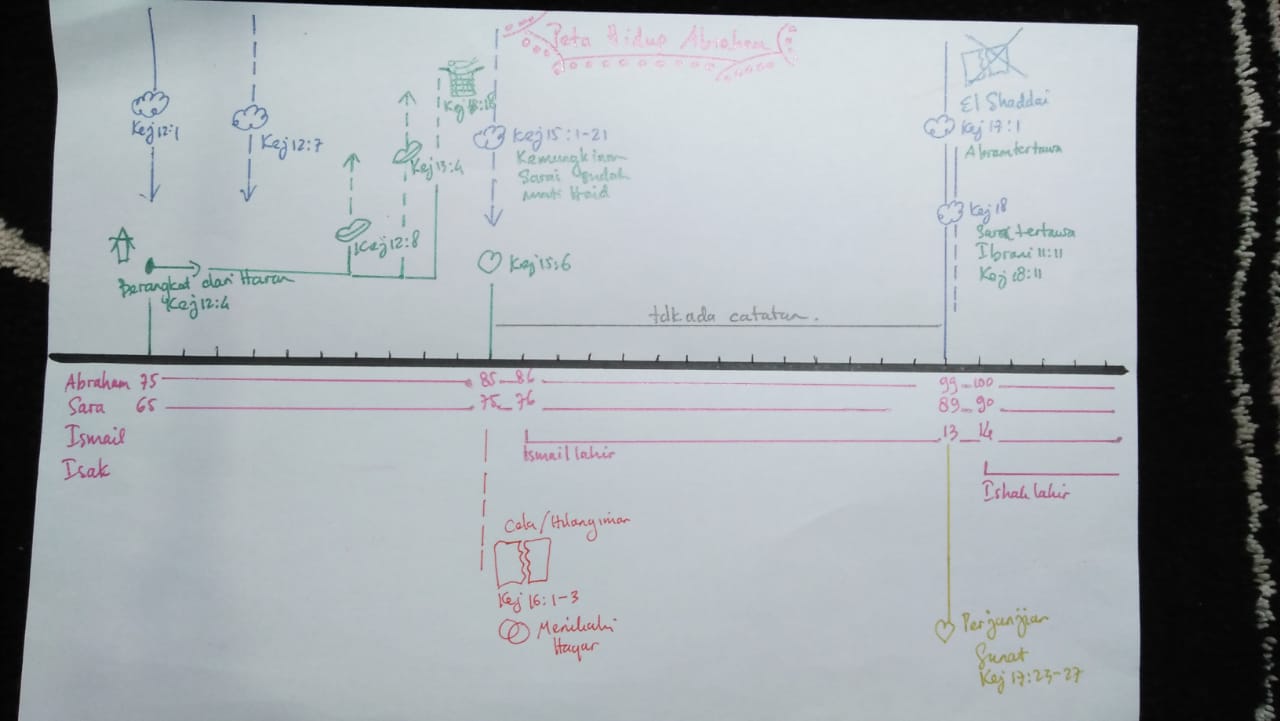 Peta Hidup Abraham
Kej 12:1
Kej 12:7
Kej 12:8
Kej 13:4
Kej 13:18
Berangkat dari Haran
Kej 12:4
Kej 15:1-21
Kemungkinan
Sarai sudah
mati Haid
Kej 15:6
El Shaddai
Kej 17:1
Abram tertawa
Kej 18
Sara tertawa
Ibrani 11:11
Kej 18:11
tdk ada catatan.
Abraham 75 85 86 99 100
Sara 65 75 76 89 90
Ismail 13 14
Ismail lahir
Isak
Ishak lahir
Kej 16:1-3
Menikahi
Hagar
Perjanjian
Sunat
Kej 17:23-27